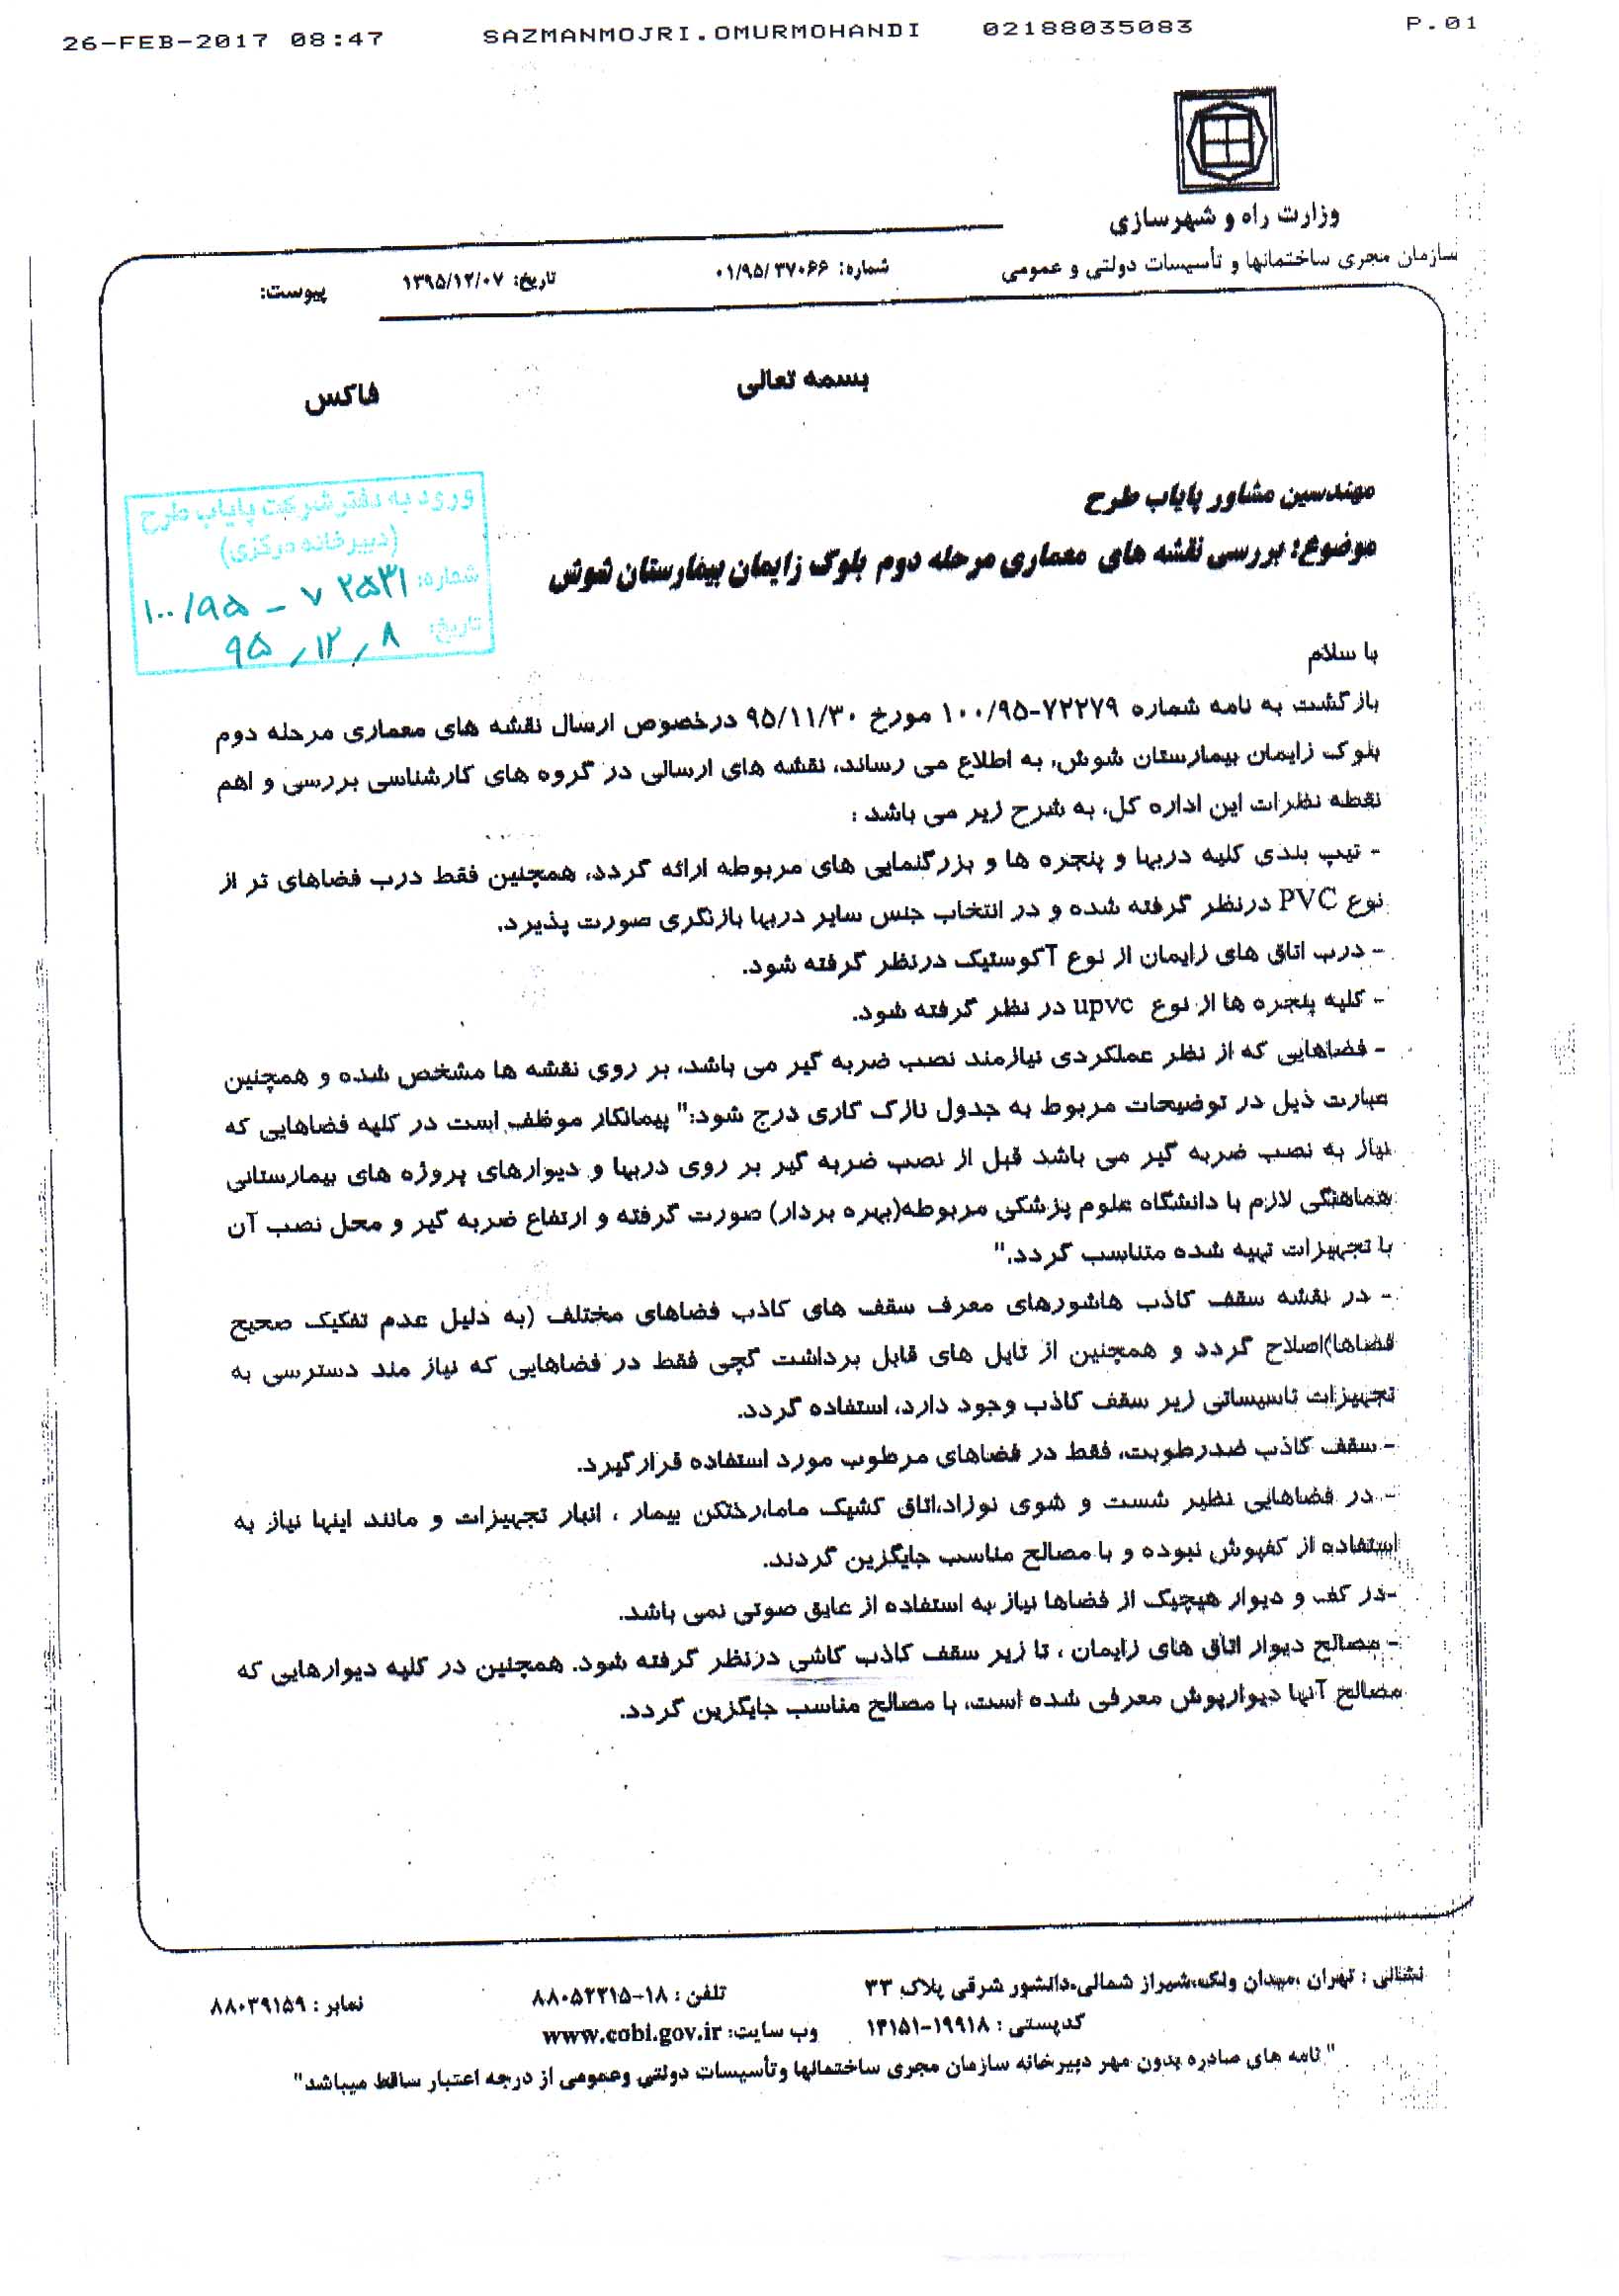 26-FEB-2017 08:47 SAZMANMOJRI.OMURMOHANDI 02188035083 P.01
وزارت راه و شهرسازی
سازمان مجری ساختمانها و تأسیسات دولتی و عمومی
شماره: ۰۱/۹۵/۳۷۰۶۶ تاریخ: ۱۳۹۵/۱۲/۰۷ پیوست:
بسمه تعالی
فاکس
ورود به دفتر شرکت پایاب طرح
(دبیرخانه مرکزی)
شماره: ۱۰۰/۹۵ - ۷۲۵۳۱
تاریخ: ۹۵/۱۲/۸
مهندسین مشاور پایاب طرح
موضوع: بررسی نقشه های معماری مرحله دوم بلوک زایمان بیمارستان شوش
با سلام
بازگشت به نامه شماره ۷۲۲۷۹-۱۰۰/۹۵ مورخ ۹۵/۱۱/۳۰ درخصوص ارسال نقشه های معماری مرحله دوم
بلوک زایمان بیمارستان شوش، به اطلاع می رساند، نقشه های ارسالی در گروه های کارشناسی بررسی و اهم
نقطه نظرات این اداره کل، به شرح زیر می باشد :
- تیپ بندی کلیه دربها و پنجره ها و بزرگنمایی های مربوطه ارائه گردد، همچنین فقط درب فضاهای تر از
نوع PVC درنظر گرفته شده و در انتخاب جنس سایر دربها بازنگری صورت پذیرد.
- درب اتاق های زایمان از نوع آکوستیک درنظر گرفته شود.
- کلیه پنجره ها از نوع upvc در نظر گرفته شود.
- فضاهایی که از نظر عملکردی نیازمند نصب ضربه گیر می باشد، بر روی نقشه ها مشخص شده و همچنین
عبارت ذیل در توضیحات مربوط به جدول نازک کاری درج شود:" پیمانکار موظف است در کلیه فضاهایی که
نیاز به نصب ضربه گیر می باشد قبل از نصب ضربه گیر بر روی دربها و دیوارهای پروژه های بیمارستانی
هماهنگی لازم با دانشگاه علوم پزشکی مربوطه(بهره بردار) صورت گرفته و ارتفاع ضربه گیر و محل نصب آن
با تجهیزات تهیه شده متناسب گردد."
- در نقشه سقف کاذب هاشورهای معرف سقف های کاذب فضاهای مختلف (به دلیل عدم تفکیک صحیح
فضاها)اصلاح گردد و همچنین از تایل های قابل برداشت گچی فقط در فضاهایی که نیاز مند دسترسی به
تجهیزات تاسیساتی زیر سقف کاذب وجود دارد، استفاده گردد.
- سقف کاذب ضدرطوبت، فقط در فضاهای مرطوب مورد استفاده قرارگیرد.
- در فضاهایی نظیر شست و شوی نوزاد،اتاق کشیک ماما،رختکن بیمار ، انبار تجهیزات و مانند اینها نیاز به
استفاده از کفپوش نبوده و با مصالح مناسب جایگزین گردند.
-در کف و دیوار هیچیک از فضاها نیاز به استفاده از عایق صوتی نمی باشد.
- مصالح دیوار اتاق های زایمان ، تا زیر سقف کاذب کاشی درنظر گرفته شود. همچنین در کلیه دیوارهایی که
مصالح آنها دیوارپوش معرفی شده است، با مصالح مناسب جایگزین گردد.
نشانی : تهران ،میدان ونک،شیراز شمالی،دانشور شرقی پلاک ۳۳ تلفن : ۱۸-۸۸۰۵۲۲۱۵ نمابر : ۸۸۰۳۹۱۵۹
کدپستی : ۱۹۹۱۸-۱۴۱۵۱ وب سایت: www.cobi.gov.ir
" نامه های صادره بدون مهر دبیرخانه سازمان مجری ساختمانها وتأسیسات دولتی وعمومی از درجه اعتبار ساقط میباشد"